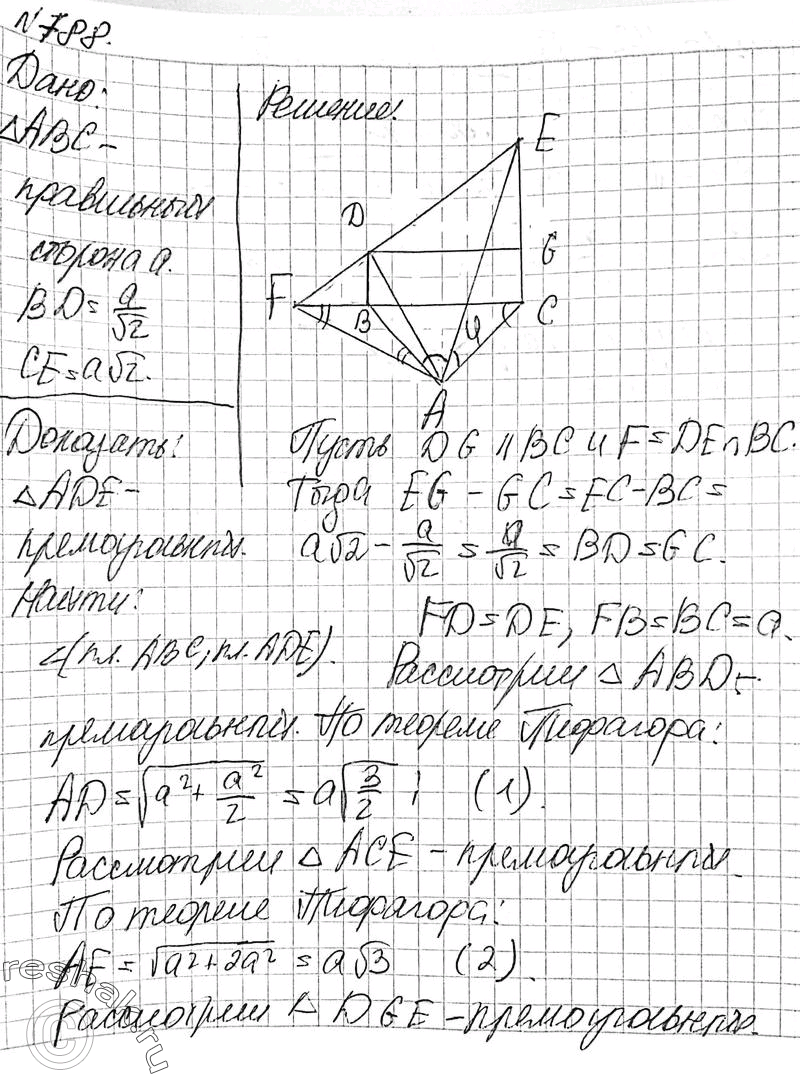 №788.
Дано:
△ABC –
правильный
сторона a.
BD = a/√2
CE = a√2.
Доказать:
△ADE –
прямоугольный.
Найти:
∠(пл. ABC; пл. ADE).
Решение:
E
D
G
F
B
φ
C
A
Пусть DG || BC и F = DE ∩ BC.
Тогда EG – GC = EC – BC =
a√2 – a/√2 = a/√2 = BD = GC.
FD = DE, FB = BC = a.
Рассмотрим △ ABD –
прямоугольный. По теореме Пифагора:
AD = √(a² + a²/2) = a√(3/2); (1).
Рассмотрим △ ACE – прямоугольный.
По теореме Пифагора:
AE = √(a² + 2a²) = a√3 (2).
Рассмотрим △ DGE – прямоугольный.
reshak.ru
©